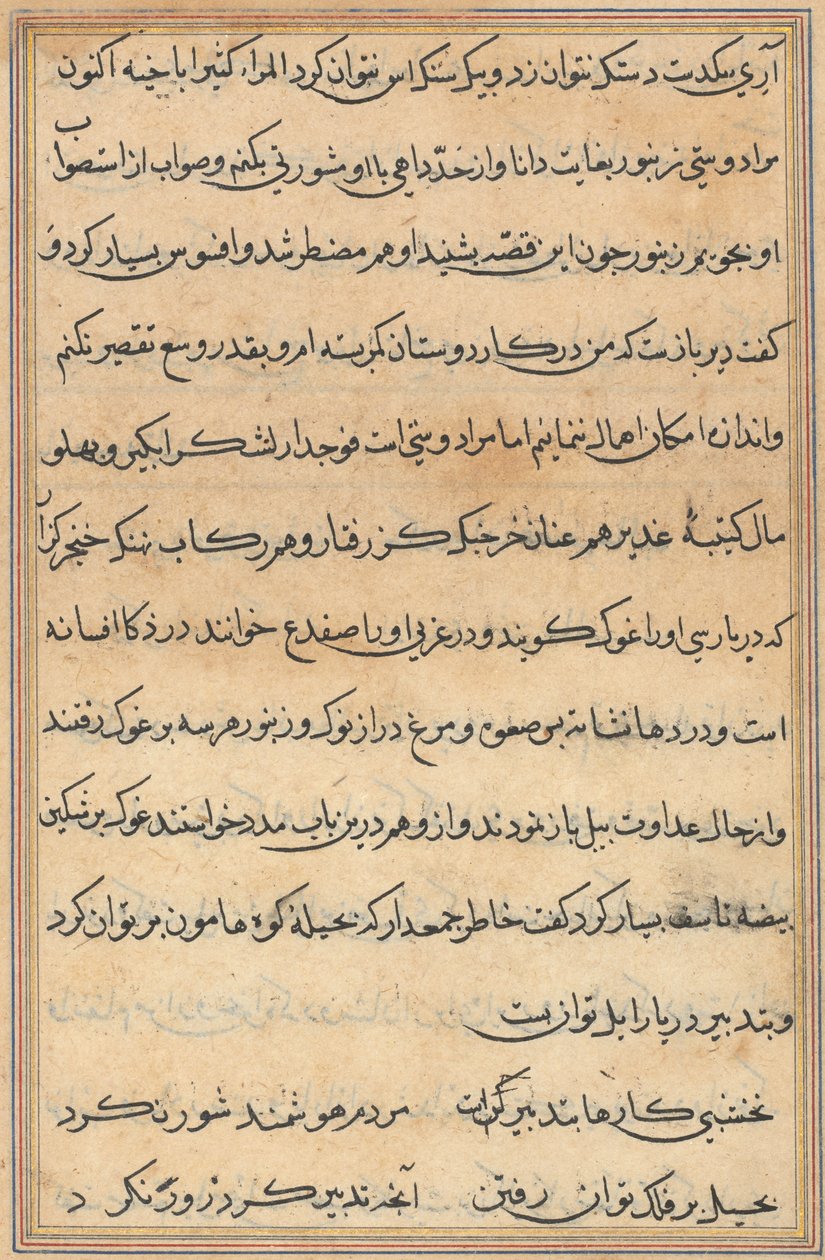 آرِی بیکدست دستک نتوان زد و بیک سنک اس نتوان کرد المراء کثیرا باخیه اکنون
مرا دوستی زنبور بغایت دانا واز حَدّ داهی با او مشورتی بکنم وصواب از استصواب
او بجویم زنبور جون این قصّه بشنید او هم مضطر شد وافسوس بسیار کرد وَ
کفت دیر باز ست که من در کار دوستان کمر بسته ام و بقدر وسع تقصیر نکنم
واندازه امکان اهمال ننمایم اما مرا دوستی است فوجدار لشکر ابکیر و پهلو
مال کتیبهٔ غدیر هم عنان خرجنک کز رفتار و هم رکاب نهنک خنجر کزار
که در پارسی اورا غوک کویند و در عربی اورا ضفدع خوانند در ذکا افسانه
است ودر دها نشانه پس صعوه و مرغ دراز نوک و زنبور هر سه بر غوک رفتند
واز حال عداوت پیل باز نمودند واز وهم درین باب مدد خواستند غوک بر شکستن
بیضه تاسف بسیار کرد کفت خاطر جمع دار که بحیلهٔ کوه هامون بر توان کرد
و بتدبیر دریا را پل توان بست
نخشبی کارها بتدبیر است مردم هوشمند شور نکرد
بحیل بر فلک توان رفتن آنجه تدبیر کرد زور نکرد